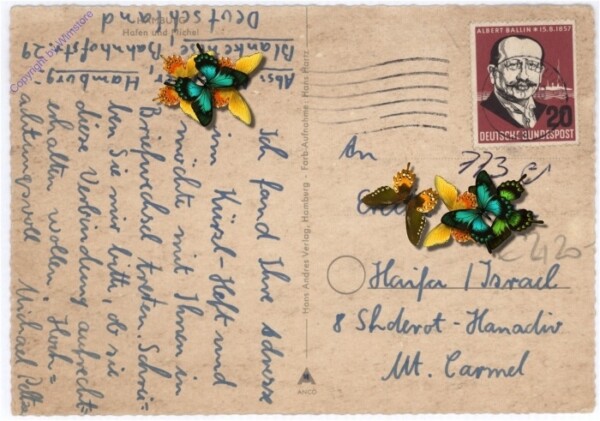 HAMBURG
Hafen und Michel
Abs.:
Hamburg-
Blankenese, Bahnhofstr. 29
Deutschland
Ich fand Ihre Adresse
im Kürsel-Heft und
möchte mit Ihnen in
Briefwechsel treten. Schrei=
ben Sie mir bitte, ob sie
diese Verbindung aufrecht=
erhalten wollen. Hoch=
achtungsvoll Michael
Hans Andres Verlag, Hamburg - Farb-Aufnahme: Hans Hartz
ANCO
ALBERT BALLIN * 15.8.1857
20
DEUTSCHE BUNDESPOST
An
Haifa / Israel
8 Shderot-Hanadiv
Mt. Carmel
Copyright by Winstore